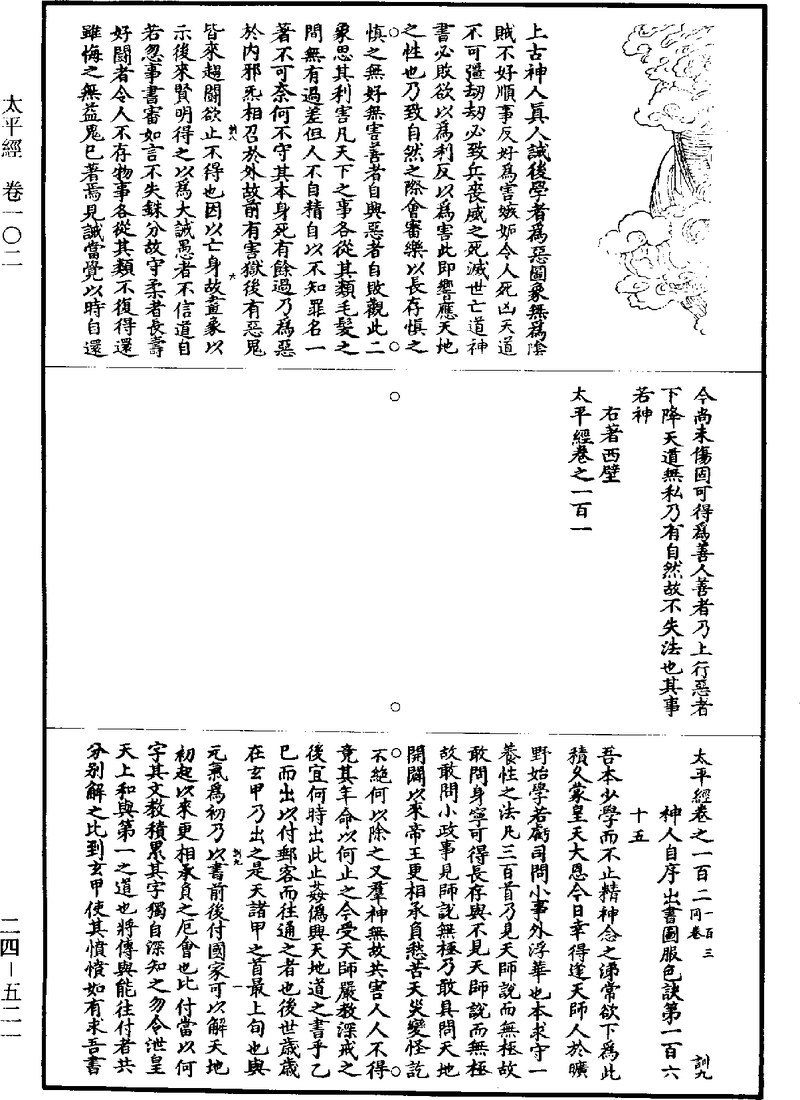 上古神人真人誡後學者為惡圖象無為陰
賊不好順事反好為害嫉妬令人死凶天道
不可彊劫劫必致兵喪威之死滅世亡道神
書必敗欲以為利反以為害此即響應天地
之性也乃致自然之際會審樂以長存慎之
慎之無好無害善者自興惡者自敗觀此二
象思其利害凡天下之事各從其類毛髮之
間無有過差但人不自精自以不知罪名一
著不可奈何不守其本身死有餘過乃為惡
於內邪炁相召於外故前有害獄後有惡鬼
皆來趨鬬欲止不得也因以亡身故畫象以
示後來賢明得之以為大誡愚者不信道自
若忽事書審如言不失銖分故守柔者長壽
好鬬者令人不存物事各從其類不復得還
雖悔之無益鬼已著焉見誡當覺以時自還
今尚未傷固可得為善人善者乃上行惡者
下降天道無私乃有自然故不失法也其事
若神
右著西壁
太平經卷之一百一
太平經卷之一百二 一百三同卷 訓九
神人自序出書圖服色訣第一百六
十五
吾本少學而不止精神念之涕常欲下為此
積久蒙皇天大恩今日幸得逢天師人於曠
野始學若虧司問小事外浮華也本求守一
養性之法凡三百首乃見天師說而無極故
敢問身寧可得長存與不見天師說而無極
故敢問小政事見師說無極乃敢具問天地
開闢以來帝王更相承負愁苦天災變怪訖
不絕何以除之又羣神無故共害人人不得
竟其年命以何止之今受天師嚴教深戒之
後宜何時出此止姦偽興天地道之書乎乙
巳而出以付郵客而往通之者也後世歲歲
在玄甲乃出之是天諸甲之首最上旬也與
元氣為初乃以書前後付國家可以解天地
初起以來更相承負之厄會也比付當以何
字其文教積累其字獨自深知之勿令泄皇
天上和與第一之道也將傳與能往付者共
分別解之比到玄甲使其憤憤如有求吾書
太平經 卷一〇二
二四－五二一